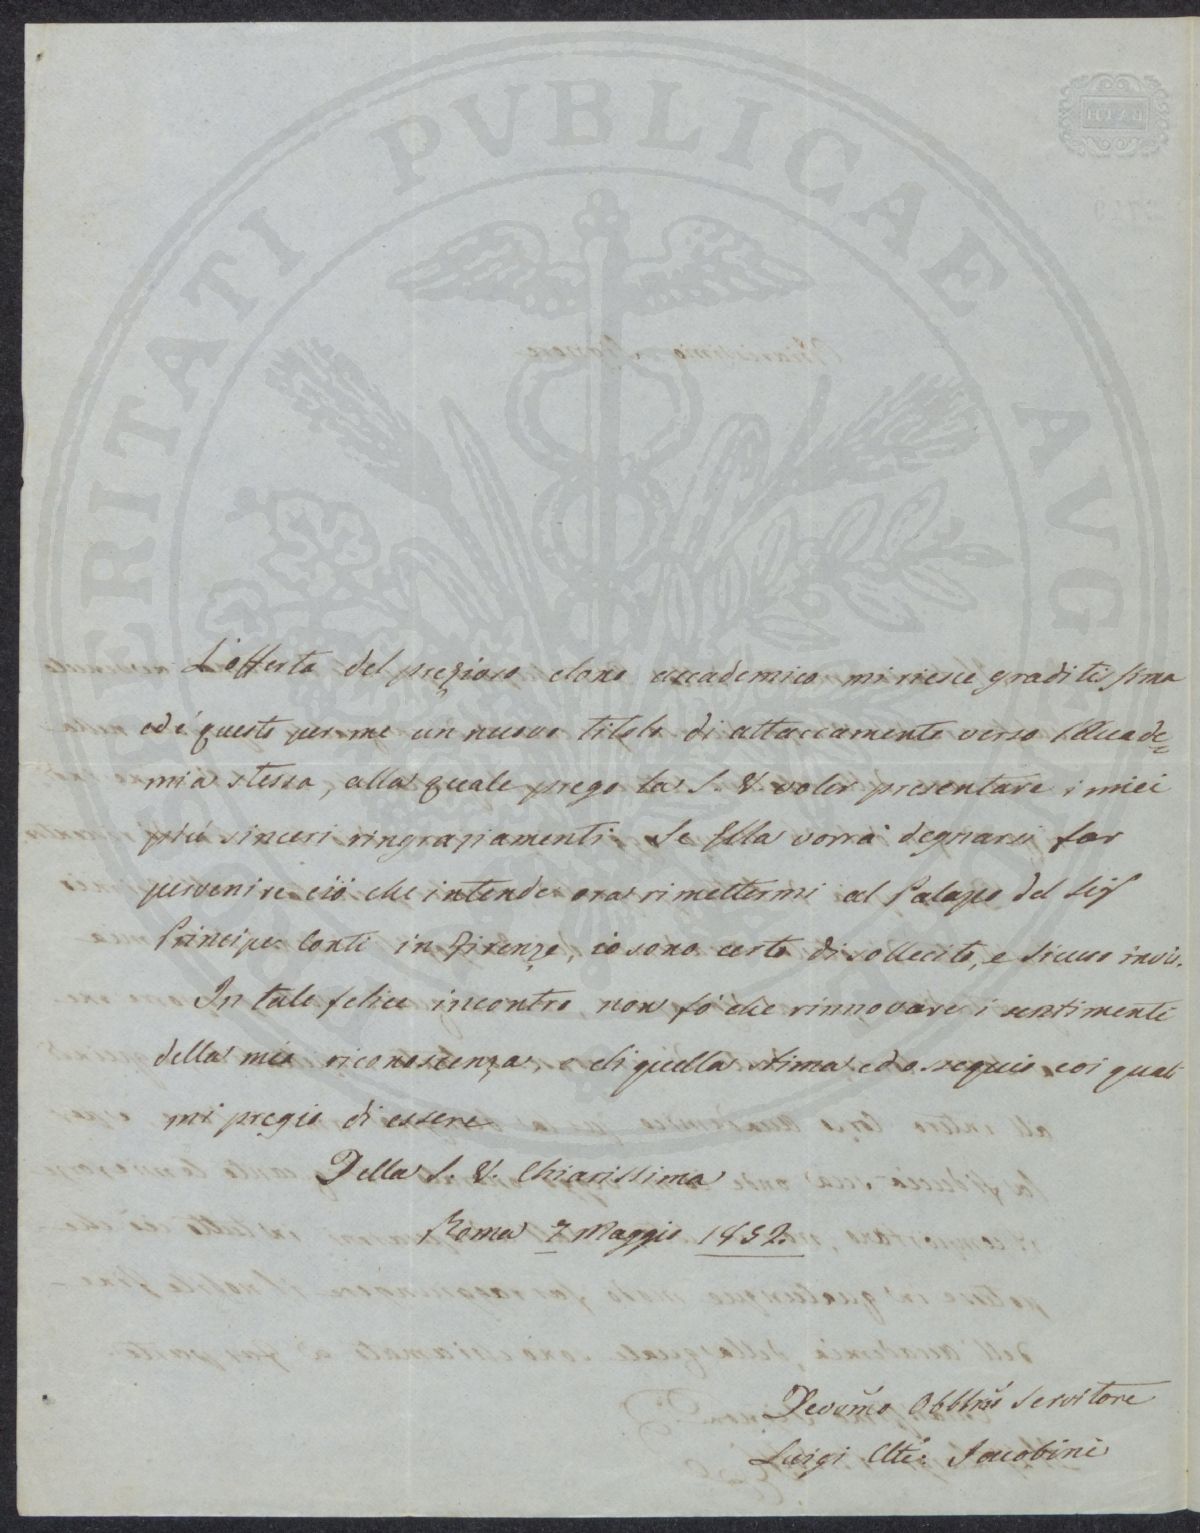 PROSPERITATI PVBLICAE AVGENDAE
BATH
L'offerta del prezioso dono accademico mi riesce graditissima
ed é questo per me un nuovo titolo di attaccamento verso l'Accade=
mia stessa, alla quale prego la S. V. voler presentare i miei
più sinceri ringraziamenti. Se Ella vorrà degnarsi far
pervenire ciò che intende ora rimettermi al Palazzo del Sig
Principe Conti in Firenze, io sono certo di sollecito, e sicuro invio.
In tale felice incontro non fò che rinnovare i sentimenti
della mia riconoscenza, e di quella stima ed ossequio coi quali
mi pregio di essere
Della S. V. Chiarissima
Roma 7 Maggio 1852.
Devõmo Obblmõ Servitore
Luigi Jacobini